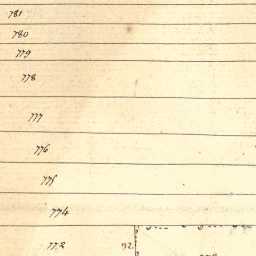 781
780
779
778
777
776
775
774
772 92